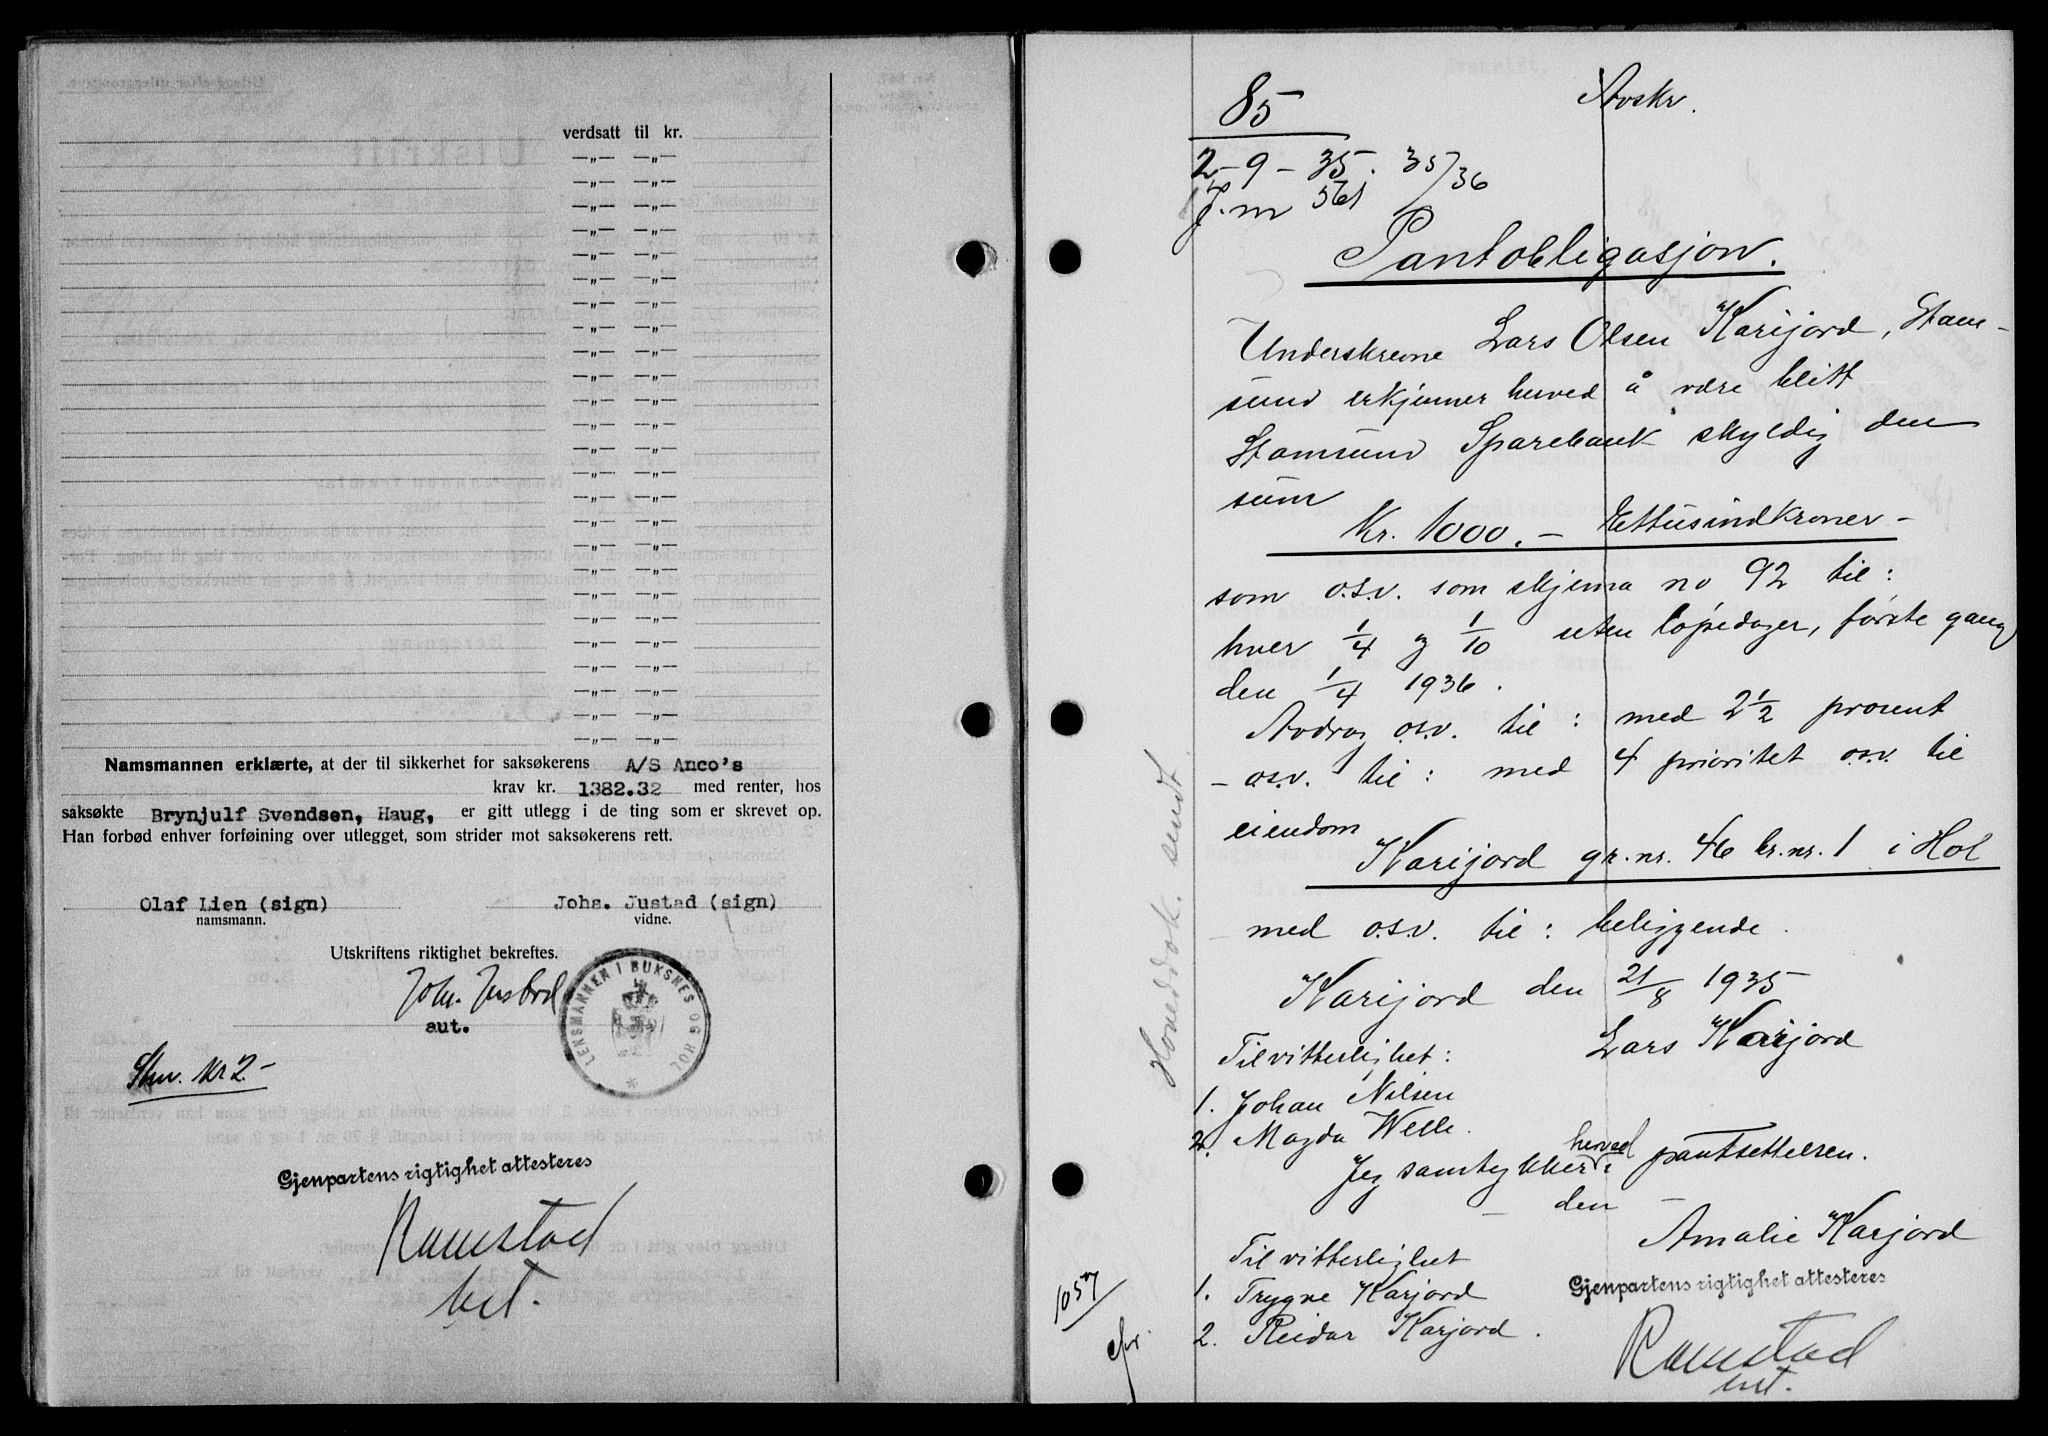 verdsatt til kr.
—„— —„—
—„— —„—
—„— —„—
—„— —„—
—„— —„—
—„— —„—
—„— —„—
—„— —„—
—„— —„—
—„— —„—
—„— —„—
—„— —„—
—„— —„—
—„— —„—
—„— —„—
—„— —„—
—„— —„—
—„— —„—
—„— —„—
—„— —„—
—„— —„—
—„— —„—
—„— —„—
—„— —„—
—„— —„—
Namsmannen erklærte, at der til sikkerhet for saksøkerens A/S Anco's
krav kr. 1382.32 med renter, hos
saksøkte Brynjulf Svendsen, Haug, er gitt utlegg i de ting som er skrevet op.
Han forbød enhver forføining over utlegget, som strider mot saksøkerens rett.
Olaf Lien (sign) Johs. Justad (sign)
namsmann. vidne.
Utskriftens riktighet bekreftes.
Joh. Justad
aut.
LENSMANNEN I BUKSNES OG HOL
Stm. Kr 2.-
Gjenpartens rigtighet attesteres
Ramstad
bet.
85 Avskr.
2-9-35. 35/36
J.nr 561
Pantobligasjon.
Underskrevne Lars Olsen Karijord, Stam-
sund erkjenner herved å være blitt
Stamsund Sparebank skyldig den
sum
Kr. 1000.- Ettusindkroner-
som o.s.v. som skjema no 92 til:
hver 1/4 og 1/10 uten løpedager, første gang
den 1/4 1936.
Avdrag o.s.v. til: med 2 1/2 prosent
- o.s.v. til: med 4 prioritet o.s.v. til
eiendom
Karijord gr.nr. 46 br.nr. 1 i Hol
med o.s.v. til: beliggende.
Karijord den 21/8 1935
Lars Karijord
Til vitterlighet:
1. Johan Nilsen
2. Magda Welle.
Jeg samtykker herved i pantsettelsen.
- den -
Amalie Karjord
Til vitterlighet
1. Trygve Karjord
2. Reidar Karjord.
Gjenpartens rigtighet attesteres
Ramstad
bet.
Hoveddok. sendt.
1057